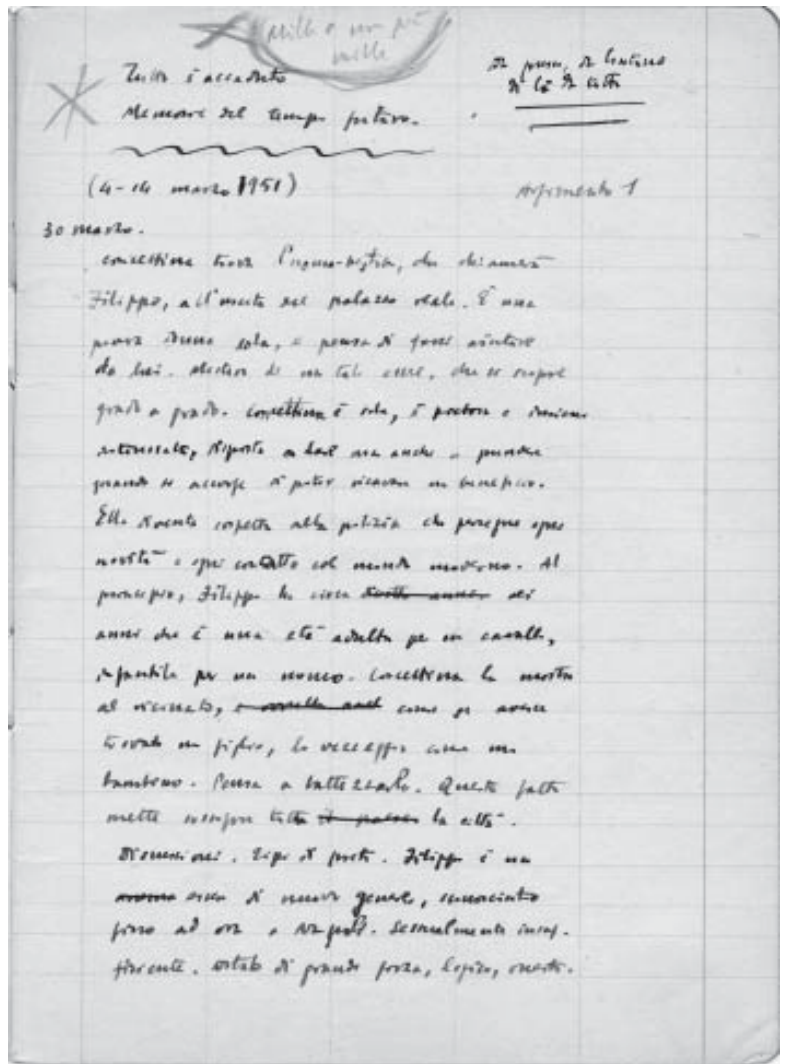 mille e non più
mille
Tutto è accaduto
Memorie del tempo futuro.
Da presso, da lontano
di là da tutto
(4-14 marzo 1951)
Argomento 1
30 marzo.
Concettina trova l'uomo-bestia, che chiamerà
Filippo, all'uscita del palazzo reale. È una
povera donna sola, e pensa di farsi aiutare
da lui. di un tale essere, che si scopre
grado a grado. Concettina è sola, è povera e insieme
interessata, disposta a dare ma anche a prendere
quando si accorge di poter ricavare un beneficio.
Ella diventa sospetta alla polizia che persegue ogni
novità e ogni contatto col mondo moderno. Al
principio, Filippo ha circa sei
anni che è una età adulta per un cavallo,
infantile per un uomo. Concettina lo mostra
al vicinato, come se avesse
trovato un figlio, lo vezzeggia come un
bambino. Pensa a battezzarlo. Questo fatto
mette sossopra tutta il paese la città.
Discussioni. Tipi di preti. Filippo è un
essere di nuovo genere, sconosciuto
fino ad ora a Napoli. Sessualmente insof-
ferente. dotato di grande forza, logico, onesto.